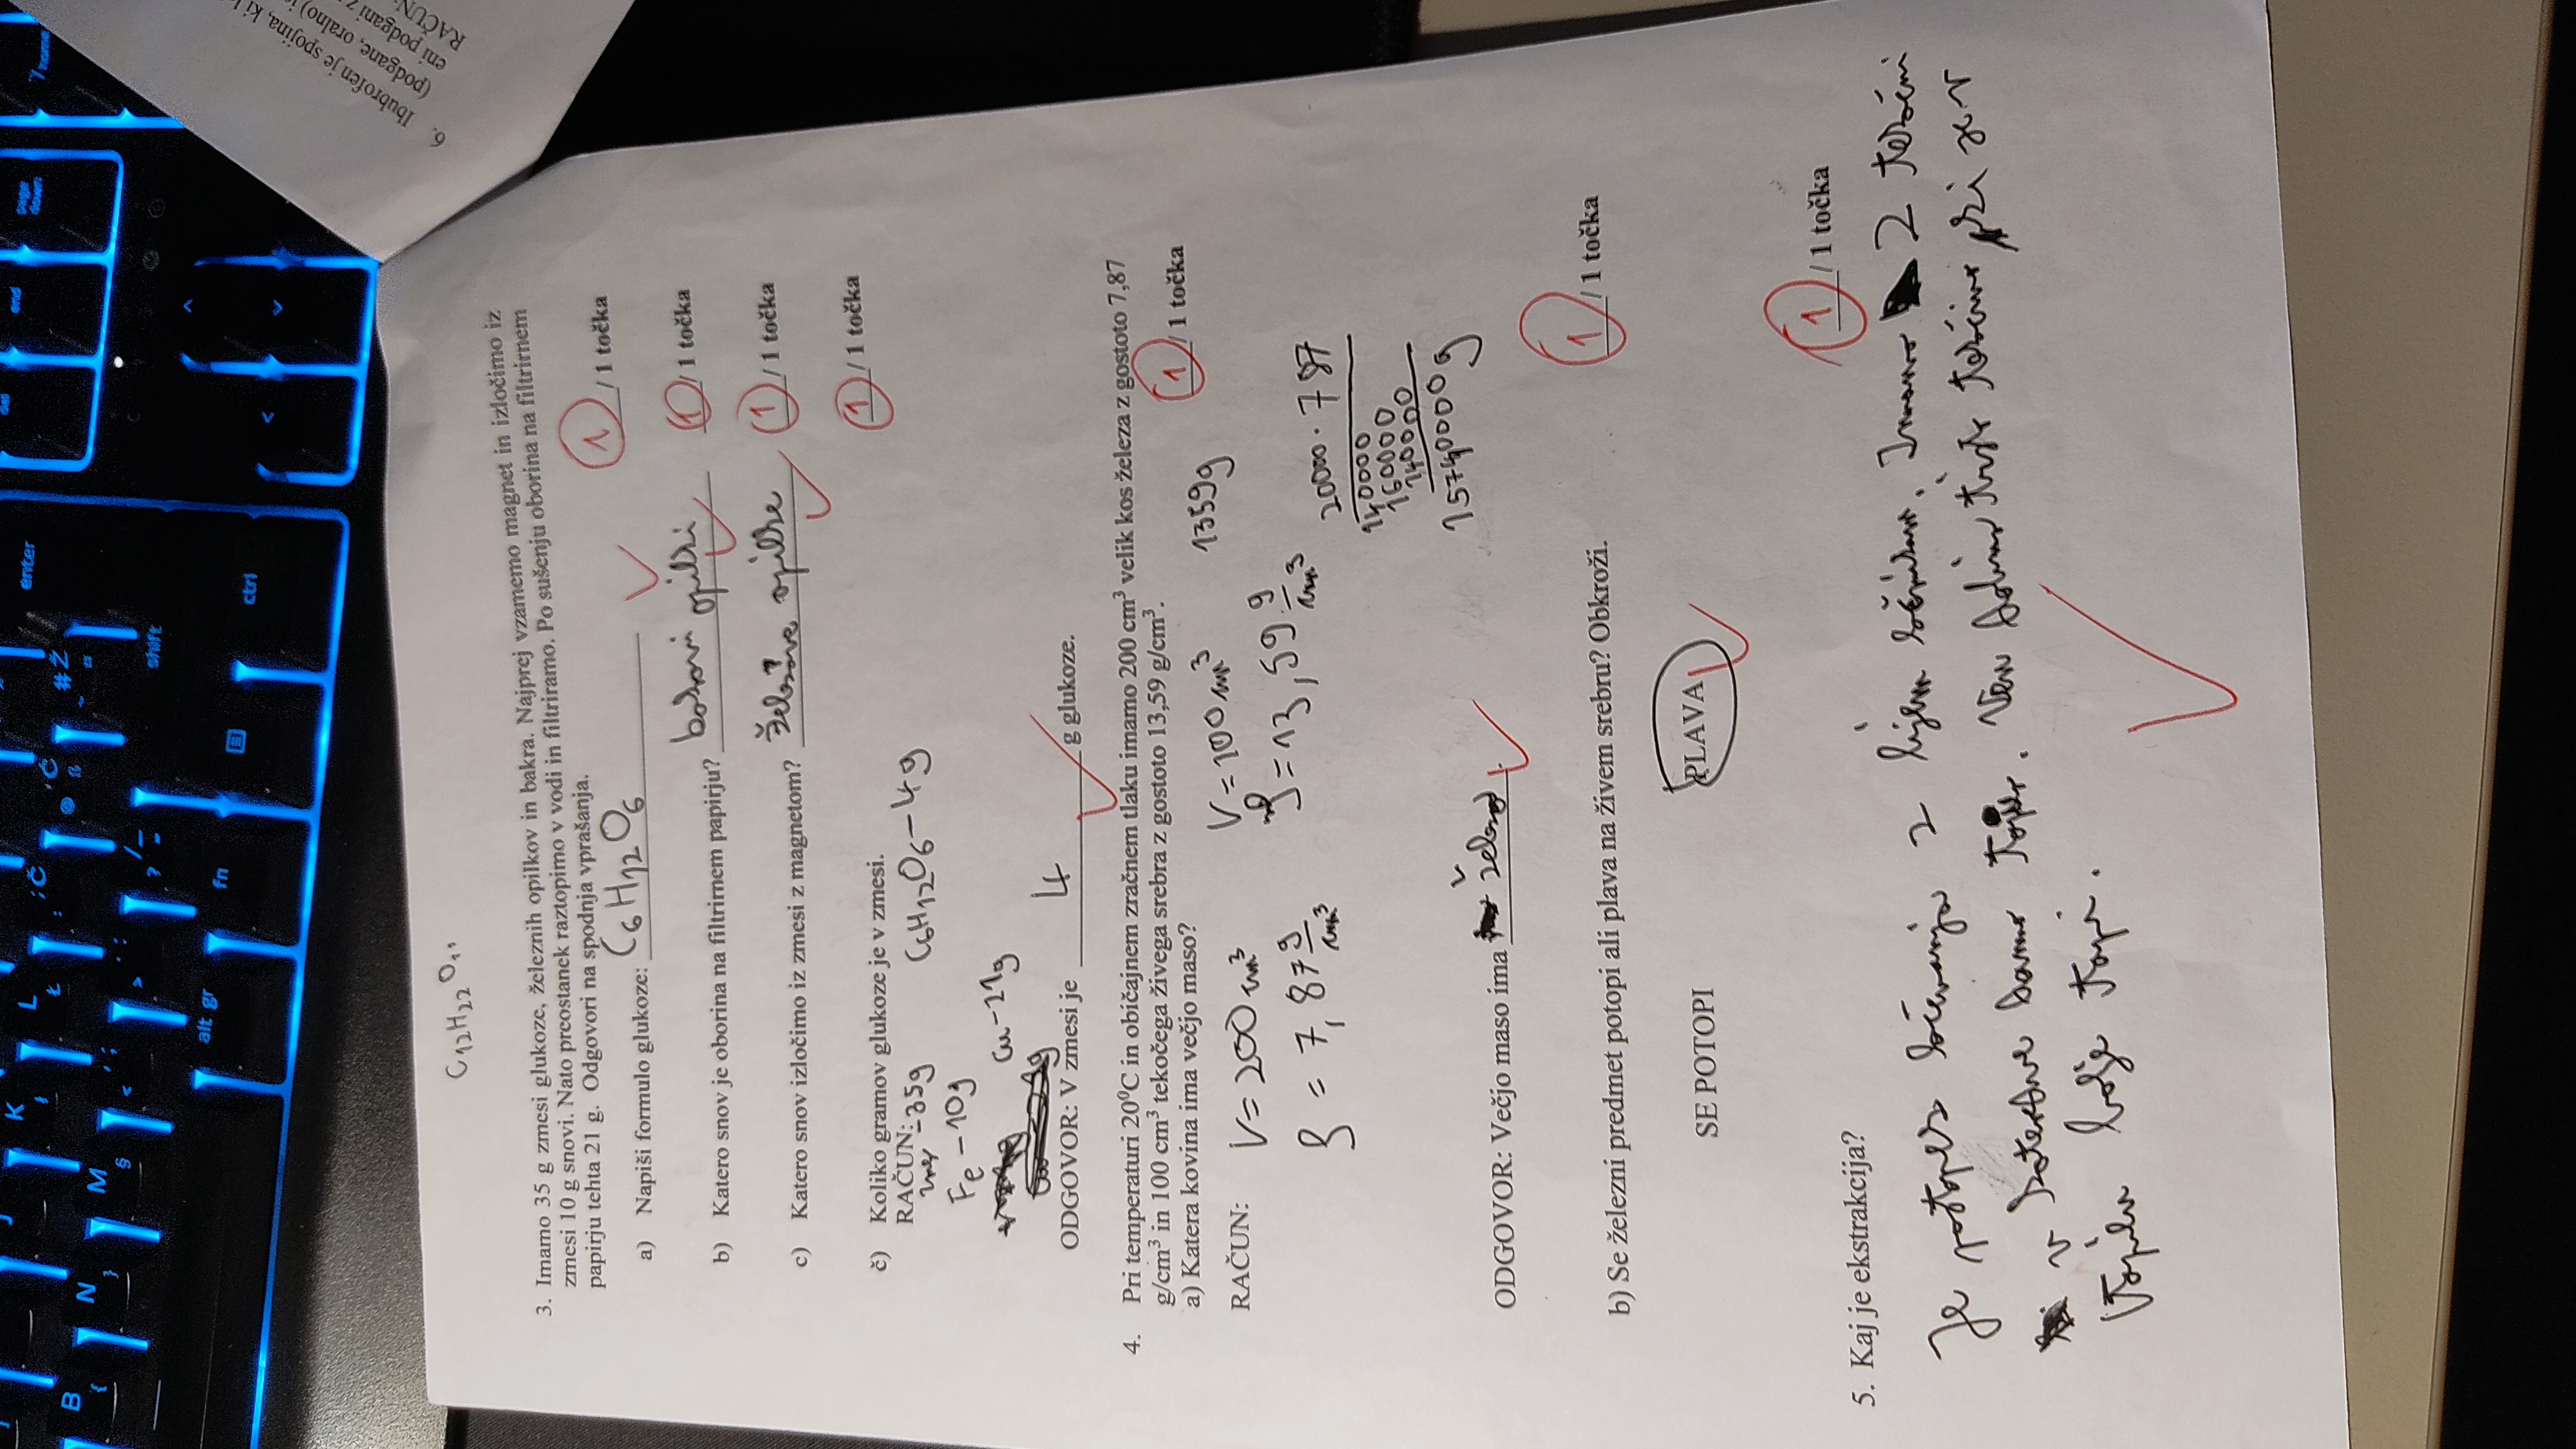 K
L
Ł
Č
enter
end
page down
7 home
B
{
N
}
M
§
<
;
>
:
?
/
shift
alt gr
fn
ctrl
<
6. Ibubrofen je spojina, ki
(podgane, oralno)
eni podgani z
RAČUN:
C12H22O11
3. Imamo 35 g zmesi glukoze, železnih opilkov in bakra. Najprej vzamemo magnet in izločimo iz
zmesi 10 g snovi. Nato preostanek raztopimo v vodi in filtriramo. Po sušenju oborina na filtrirnem
papirju tehta 21 g. Odgovori na spodnja vprašanja.
1 / 1 točka
a) Napiši formulo glukoze: C6H12O6
b) Katero snov je oborina na filtrirnem papirju? opilki 1 / 1 točka
c) Katero snov izločimo iz zmesi z magnetom? železove opilke 1 / 1 točka
č) Koliko gramov glukoze je v zmesi. 1 / 1 točka
RAČUN:
zmes - 35g C6H12O6 - 4g
Fe - 10g
Cu - 21g
ODGOVOR: V zmesi je 4 g glukoze.
4. Pri temperaturi 20⁰C in običajnem zračnem tlaku imamo 200 cm³ velik kos železa z gostoto 7,87
g/cm³ in 100 cm³ tekočega živega srebra z gostoto 13,59 g/cm³.
a) Katera kovina ima večjo maso? 1 / 1 točka
RAČUN: V = 200 cm³ V = 100 cm³ 1359g
ρ = 7,87 g/cm³ ρ = 13,59 g/cm³
20000 · 787
140000
160000
140000
15740000g
ODGOVOR: Večjo maso ima železo.
b) Se železni predmet potopi ali plava na živem srebru? Obkroži. 1 / 1 točka
SE POTOPI PLAVA
5. Kaj je ekstrakcija? 1 / 1 točka
Je postopek ločevanja z lijem ločnikom. Imamo 2 tekočini
v katerdve damo topilo. Ven dobimo tisto tekočino ki se v
topilu bolje topi.